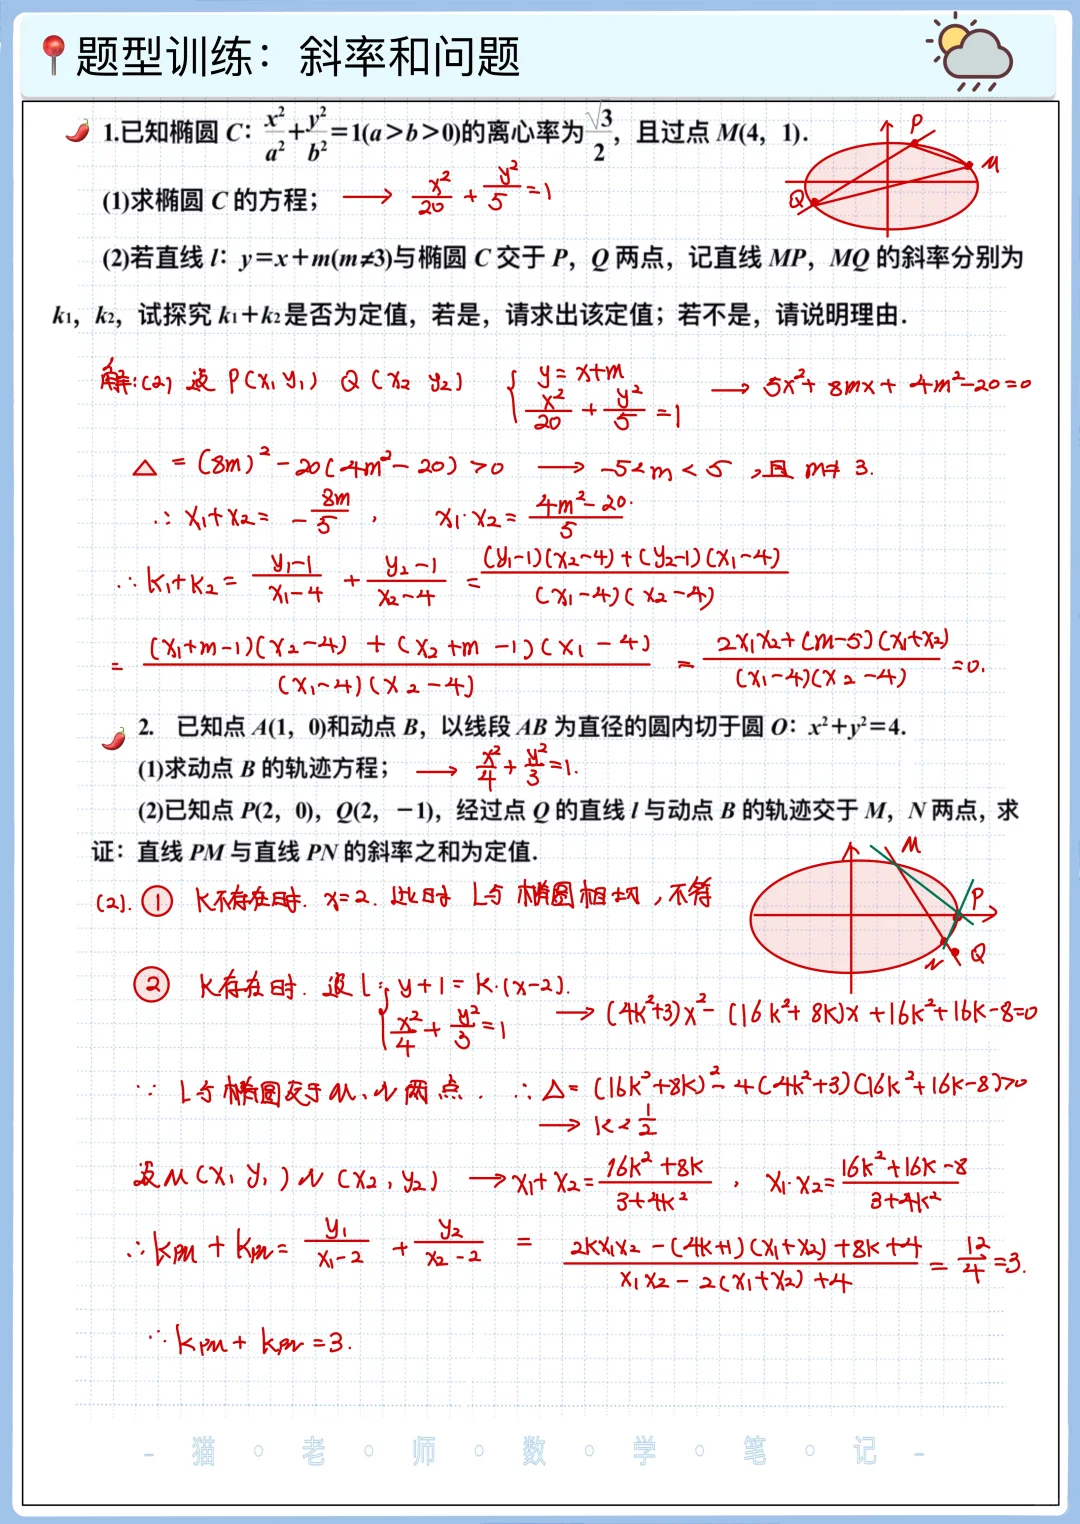 题型训练：斜率和问题
1.已知椭圆 C：x²/a²+y²/b²=1(a>b>0)的离心率为√3/2，且过点 M(4，1).
(1)求椭圆 C 的方程； → x²/20 + y²/5 =1
(2)若直线 l：y=x+m(m≠3)与椭圆 C 交于 P，Q 两点，记直线 MP，MQ 的斜率分别为
k₁，k₂，试探究 k₁+k₂是否为定值，若是，请求出该定值；若不是，请说明理由.
P
M
Q
解:(2) 设 P(x₁ y₁) Q(x₂ y₂) { y=x+m x²/20 + y²/5 =1 → 5x²+8mx+4m²-20=0
△ = (8m)²-20(4m²-20)>0 → -5<m<5 ,且 m≠3.
∴ x₁+x₂= -8m/5 , x₁·x₂= (4m²-20)/5
∴ k₁+k₂= (y₁-1)/(x₁-4) + (y₂-1)/(x₂-4) = ((y₁-1)(x₂-4)+(y₂-1)(x₁-4))/((x₁-4)(x₂-4))
= ((x₁+m-1)(x₂-4)+(x₂+m-1)(x₁-4))/((x₁-4)(x₂-4)) = (2x₁x₂+(m-5)(x₁+x₂))/((x₁-4)(x₂-4)) =0.
2. 已知点 A(1，0)和动点 B，以线段 AB 为直径的圆内切于圆 O：x²+y²=4.
(1)求动点 B 的轨迹方程； → x²/4 + y²/3 =1.
(2)已知点 P(2，0)，Q(2，-1)，经过点 Q 的直线 l 与动点 B 的轨迹交于 M，N 两点，求
证：直线 PM 与直线 PN 的斜率之和为定值.
M
P
N
Q
(2). ① k不存在时. x=2. 此时 l与椭圆相切,不符
② k存在时. 设 l: { y+1=k·(x-2). x²/4 + y²/3 =1 → (4k²+3)x²-(16k²+8k)x+16k²+16k-8=0
∵ l与椭圆交于M、N两点. ∴ △=(16k²+8k)²-4(4k²+3)(16k²+16k-8)>0
→ k<1/2
设M(x₁ y₁) N(x₂, y₂) → x₁+x₂= (16k²+8k)/(3+4k²) , x₁·x₂= (16k²+16k-8)/(3+4k²)
∴ kPM + kPN= y₁/(x₁-2) + y₂/(x₂-2) = (2kx₁x₂-(4k+1)(x₁+x₂)+8k+4)/(x₁x₂-2(x₁+x₂)+4) = 12/4 =3.
∴ kPM + kPN =3.
- 猫 · 老 · 师 · 数 · 学 · 笔 · 记 -